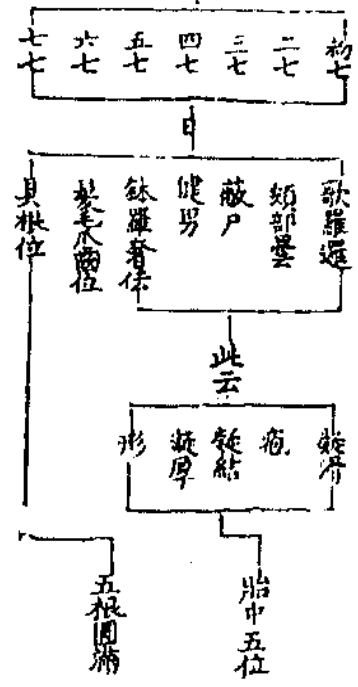 初七
二七
三七
四七
五七
六七
七七
日
歌羅邏
頞部曇
蔽尸
健男
鉢羅奢佉
髮毛爪齒位
具根位
此云
凝滑
疱
凝結
凝厚
形
胎中五位
五根圓滿